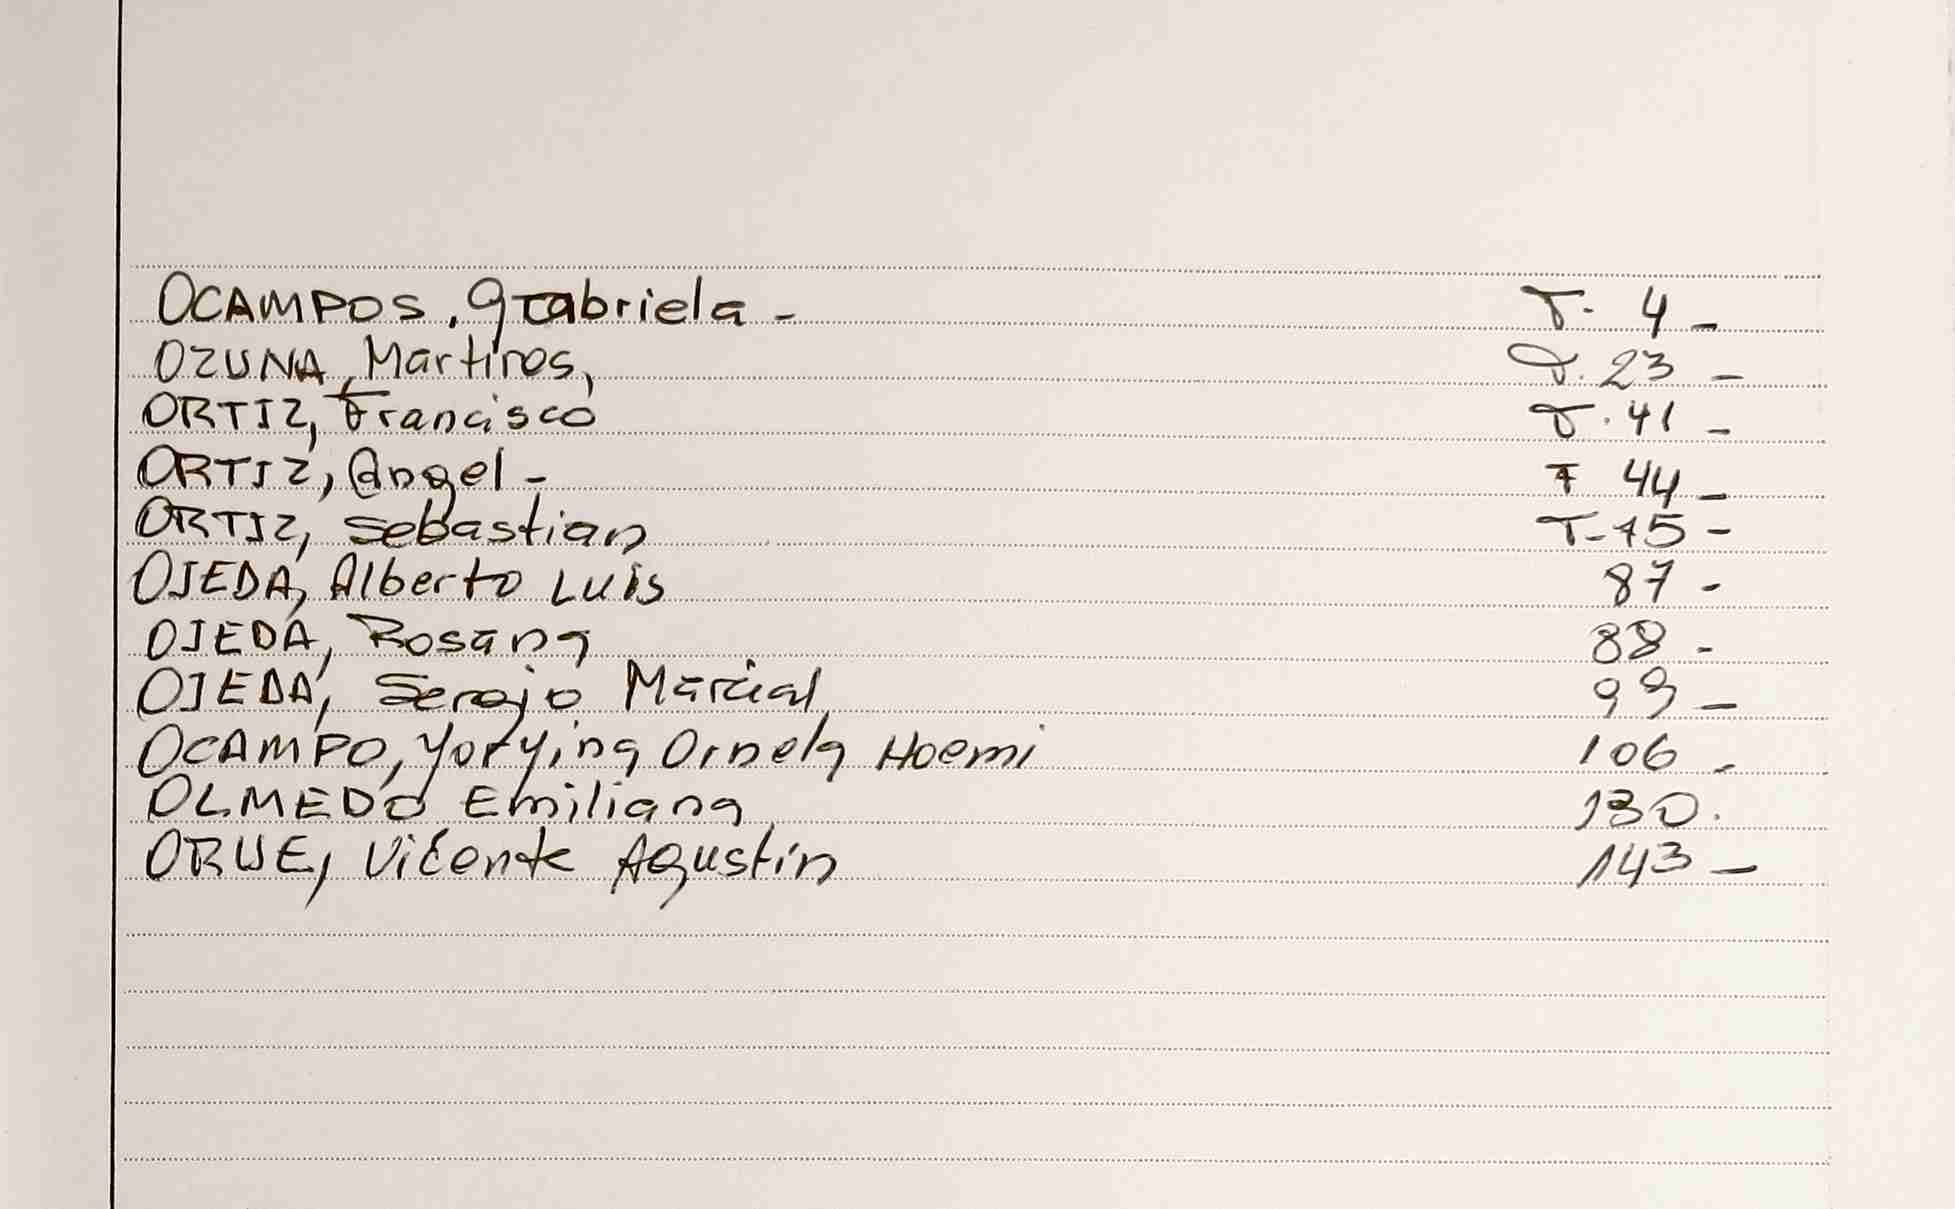 OCAMPOS, Gabriela - T. 4 -
OZUNA, Martires, T. 23 -
ORTIZ, Francisco T. 41 -
ORTIZ, Angel - T 44 -
ORTIZ, Sebastian T- 75 -
OJEDA, Alberto Luis 87 -
OJEDA, Rosana 88 -
OJEDA, Sergio Marcial 99 -
OCAMPO, Ornela Noemi 106 -
OLMEDO Emiliana 130.
ORUE, Vicente Agustin 143 -